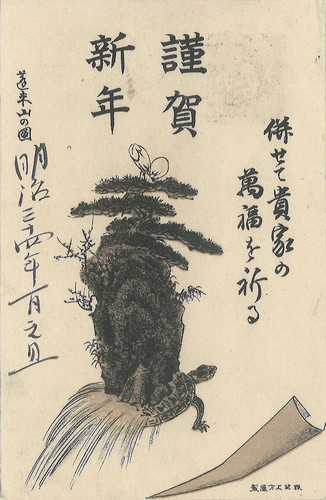 謹賀
新年
併せて貴家の
萬福を祈る
蓬莱山の圖
明治三十四年一月元旦